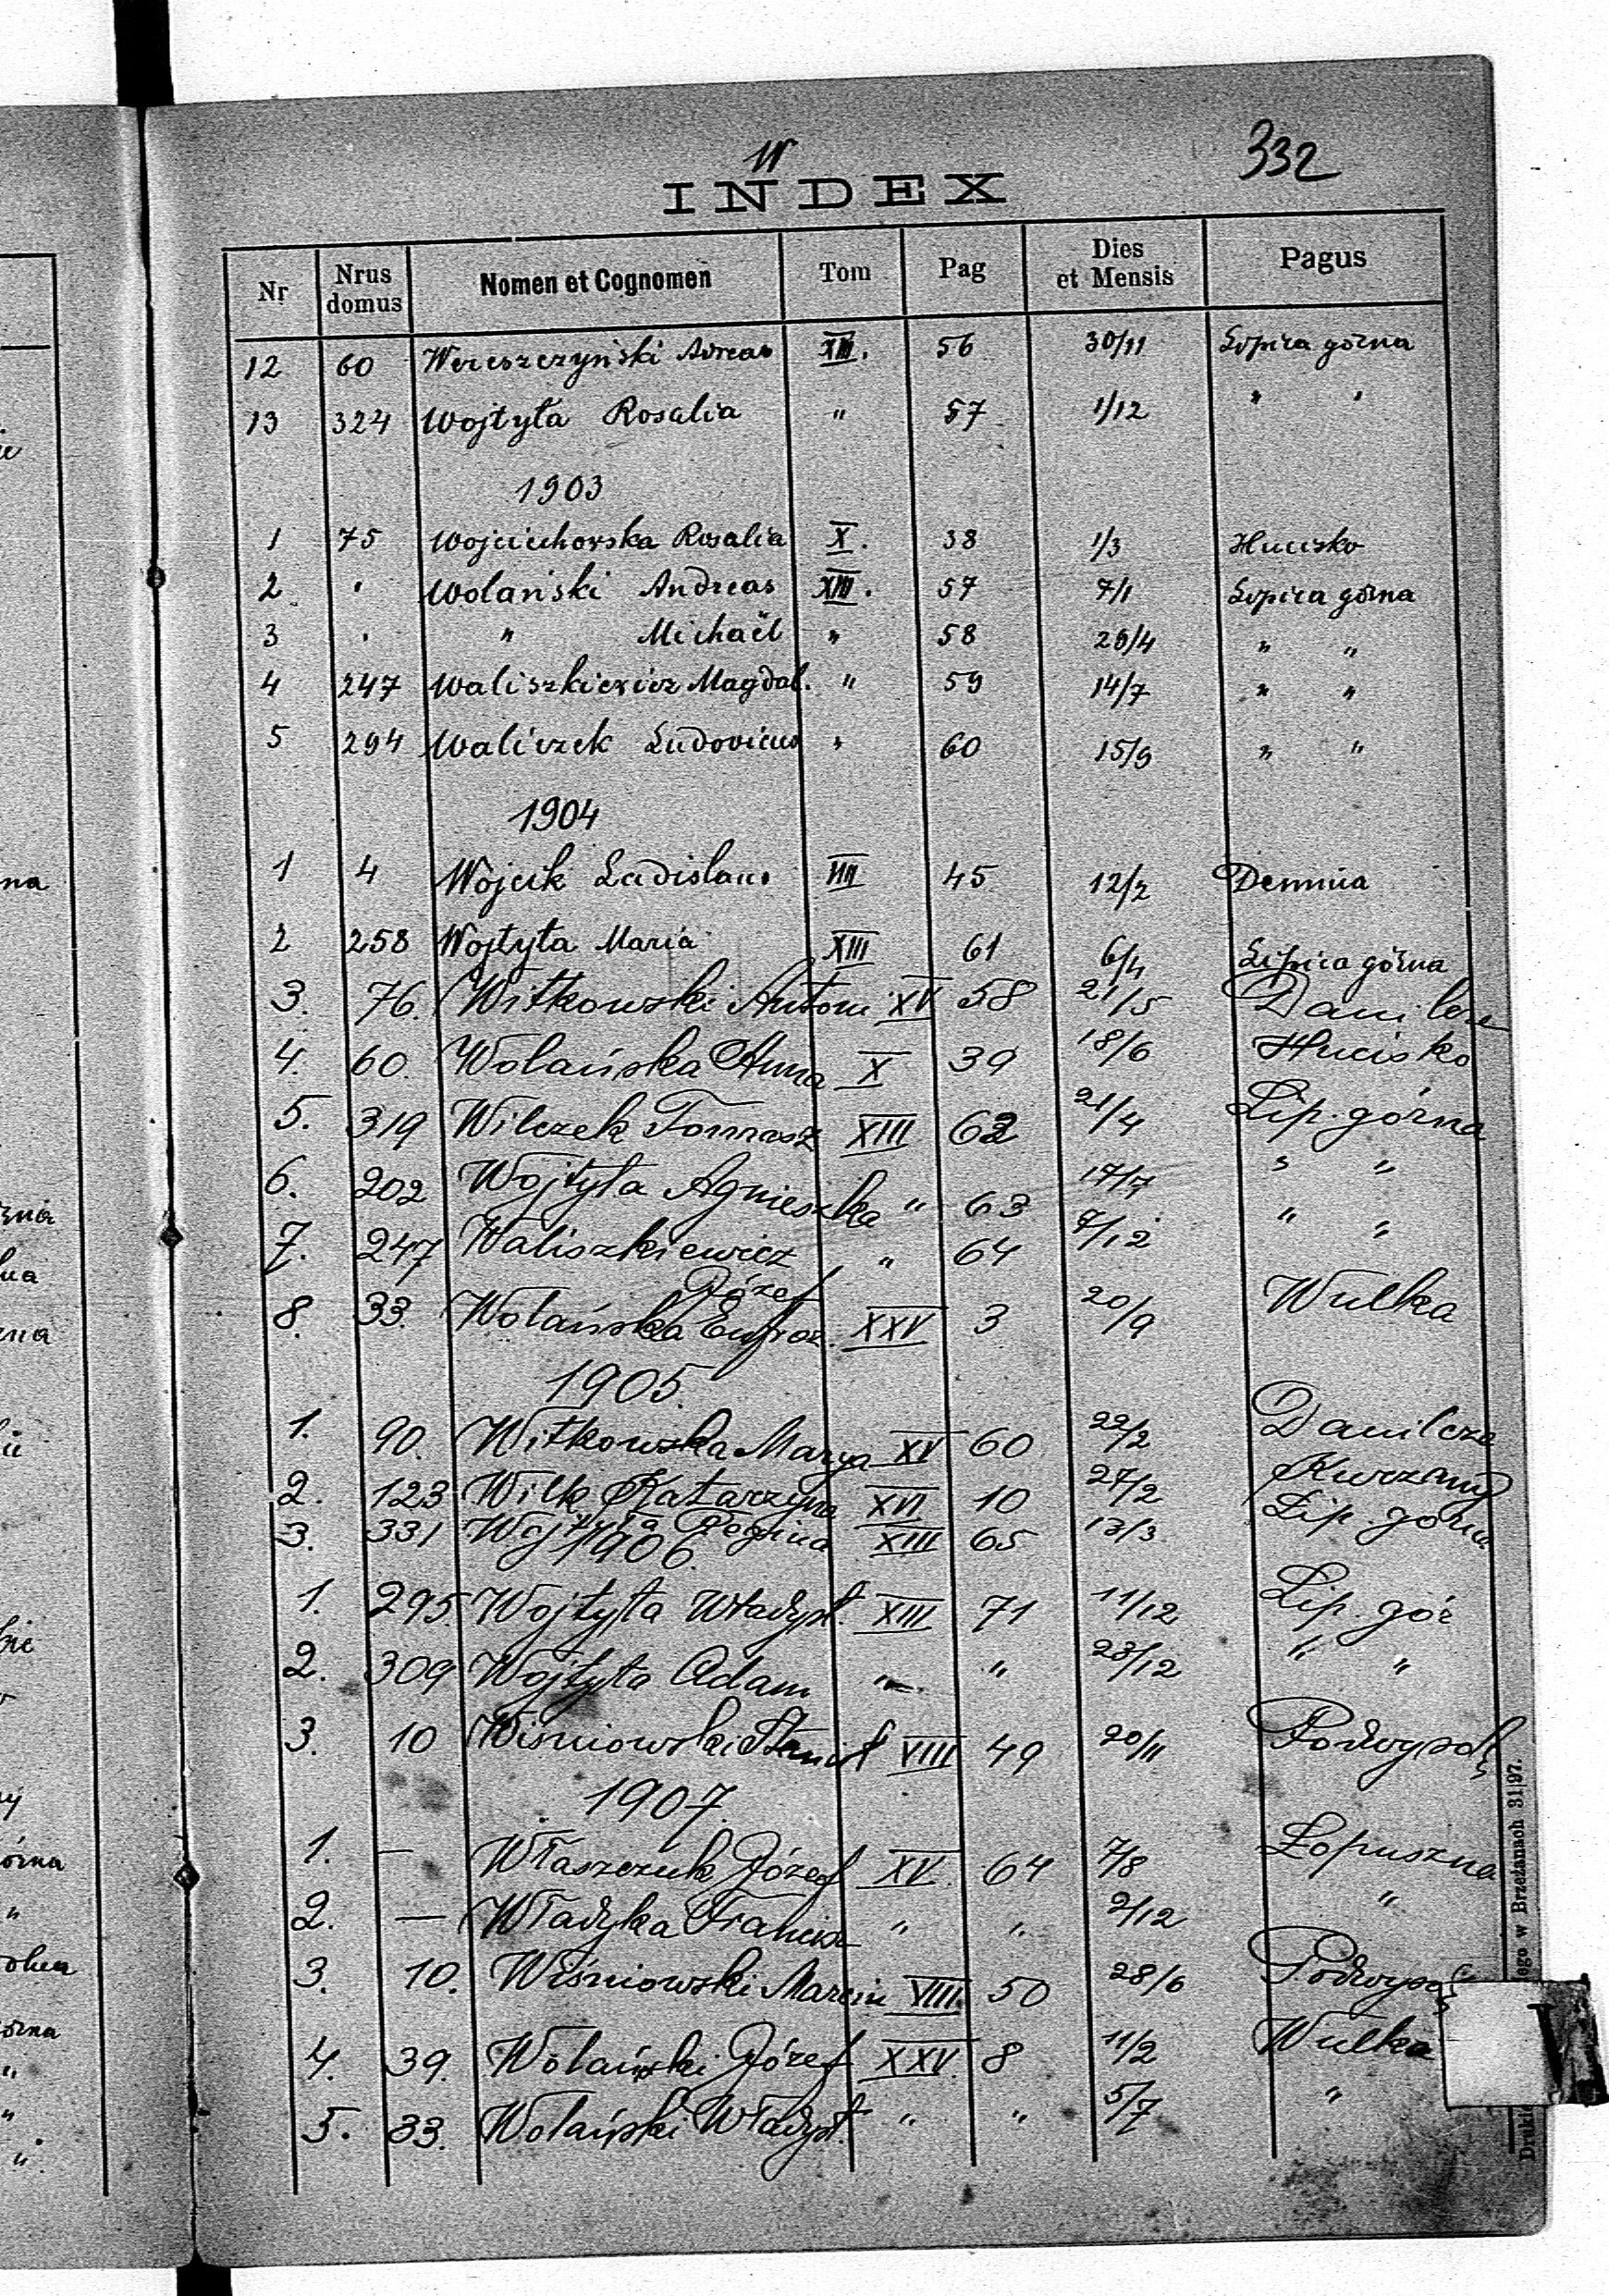 W
332
INDEX
Nr Nrus domus Nomen et Cognomen Tom Pag Dies et Mensis Pagus
12 60 Wereszczyński Adreas XIII. 56 30/11 Lipica górna
13 324 Wojtyła Rosalia " 57 1/12 " "
1903
1 75 Wojciechowska Rosalia X. 38 1/3 Hucisko
2 " Wolański Andreas XIII. 57 7/1 Lipica górna
3 " " Michaël " 58 29/4 " "
4 247 Waliszkiewicz Magdal. " 59 14/7 " "
5 294 Waliczek Ludovicus " 60 15/9 " "
1904
1 4 Wójcik Ladislaus VIII 45 12/2 Demnia
2 258 Wojtyła Maria XIII 61 6/4 Lipica górna
3. 76. Witkowski Antoni XV 58 21/5
4. 60. Wolańska Anna X 39 18/6 Hucisko
5. 319 Wilczek Tomasz XIII 62 21/4 Lip. górna
6. 202 Wojtyła Agnieszka " 63 17/7 " "
7. 247 Waliszkiewicz Józef " 64 7/12 " "
8. 33. Wolańska Eufroz. XXV 3 20/9 Wulka
1905.
1. 90. Witkowska Marya XV 60 22/2 Danilcze
2. 123 Wilk Katarzyna XVI 10 27/2 Kurzany
3. 331 Wojtyła Regina XIII 65 13/3 Lip. górna
1906.
1. 295. Wojtyła Władysł. XIII 71 11/12 Lip. gór
2. 309 Wojtyła Adam " " 23/12 " "
3. 10 Wiśniowski Stanisł VIII 49 20/11
1907.
1. — Właszczuk Józef XV. 64 7/8 Łopuszna
2. — Władyka Francisz " " 2/12 "
3. 10. Wiśniowski Marcin VIII. 50 28/6
4. 39. Wolański Józef XXV. 8 11/2 Wulka
5. 33. Wolański Władysł. " " 5/7 "
w Brzeżanach 31|97.